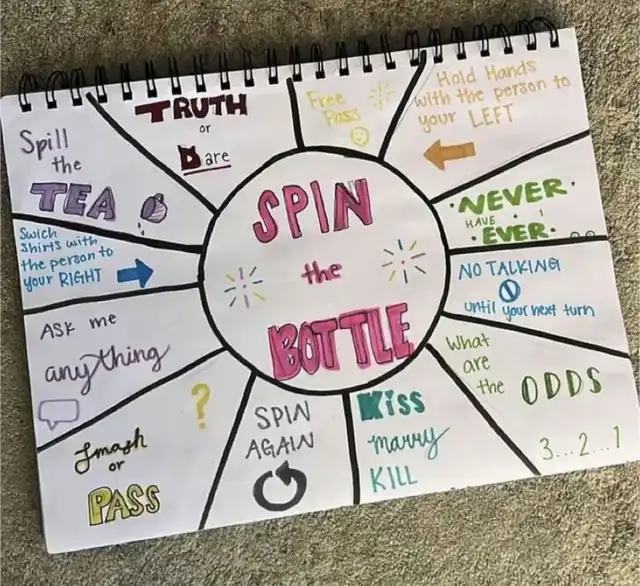 SPIN
the
BOTTLE
TRUTH
or
Dare
Free
Pass
Hold Hands
with the person to
your LEFT
NEVER
HAVE I
EVER
NO TALKING
until your next turn
What
are
the
ODDS
3...2...1
Kiss
marry
KILL
SPIN
AGAIN
?
Smash
or
PASS
ASK me
anything
Swich
shirts with
the person to
your RIGHT
Spill
the
TEA